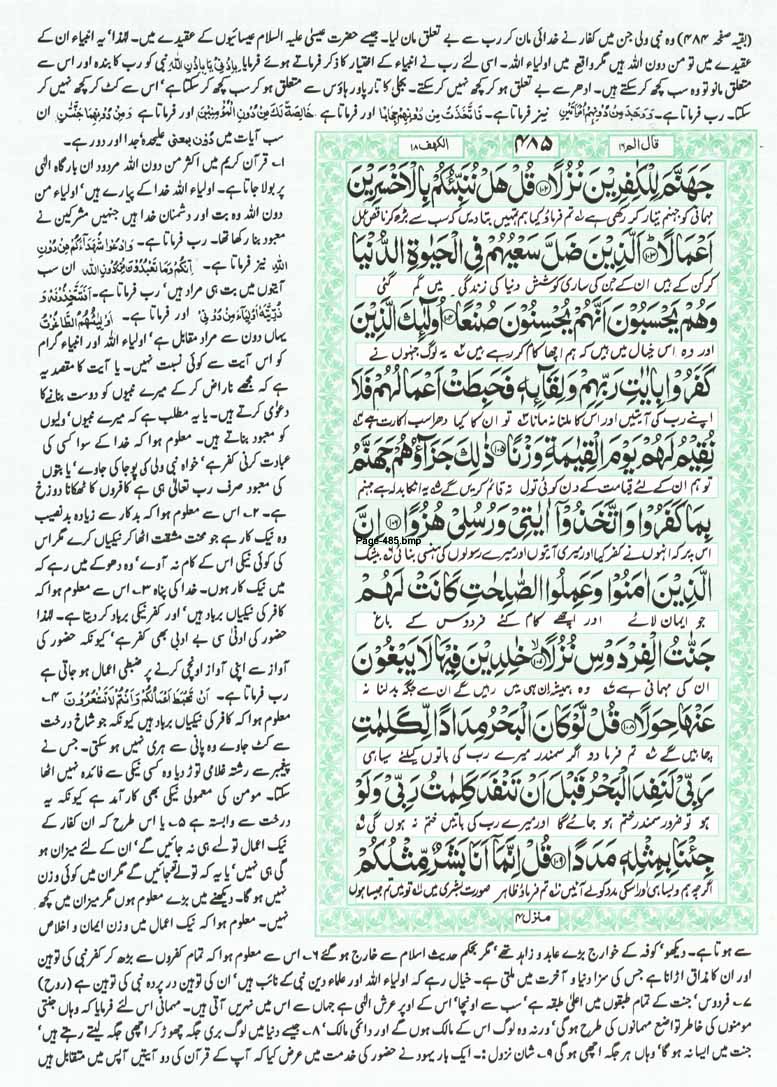 (بقیہ صفحہ ۴۸۴) وہ نبی ولی جن میں کفار نے خدائی مان کر رب سے بے تعلق مان لیا۔ جیسے حضرت عیسیٰ علیہ السلام عیسائیوں کے عقیدے میں۔ لہٰذا یہ انبیاء ان کے
عقیدے میں تو من دون اللہ ہیں مگر واقع میں اولیاء اللہ۔ اسی لئے رب نے انبیاء کے اختیار کا ذکر فرماتے ہوئے فرمایا باذنی یا باذن اللہ نبی کو رب کا بندہ اور اس سے
متعلق مانو تو وہ سب کچھ کر سکتے ہیں۔ ادھر سے بے تعلق ہو کر کچھ نہیں کر سکتے۔ بجلی کا تار پاور ہاؤس سے متعلق ہو کر سب کچھ کر سکتا ہے۔ اس سے کٹ کر کچھ نہیں کر
سکتا۔ رب فرماتا ہے۔ وَوَجَدَ مِنْ دُوْنِهِمُ امْرَاَتَیْنِ نیز فرماتا ہے۔ فَاتَّخَذَتْ مِنْ دُوْنِهِمْ حِجَابًا اور فرماتا ہے خَالِصَةً لَّكَ مِنْ دُوْنِ الْمُؤْمِنِیْنَ اور فرماتا ہے وَمِنْ دُوْنِهِمَا جَنَّتٰنِ ان
سب آیات میں دُوْن بمعنی علیحدہ‘ جدا اور دور ہے۔
۱۔ قرآن کریم میں اکثر من دون اللہ مردود ان بارگاہ الٰہی
پر بولا جاتا ہے۔ اولیاء اللہ خدا کے پیارے ہیں‘ اولیاء من
دون اللہ وہ بت اور دشمنان خدا ہیں جنہیں مشرکین نے
معبود بنا رکھا تھا۔ رب فرماتا ہے۔ وَادْعُوْا شُهَدَآءَكُمْ مِنْ دُوْنِ
اللّٰهِ نیز فرماتا ہے۔ اِنَّكُمْ وَمَا تَعْبُدُوْنَ مِنْ دُوْنِ اللّٰهِ ان سب
آیتوں میں بت ہی مراد ہیں‘ رب فرماتا ہے۔ اَفَتَتَّخِذُوْنَهٗ وَ
ذُرِّیَّتَهٗ اَوْلِیَآءَ مِنْ دُوْنِیْ اور فرماتا ہے۔ اَوْلِیٰٓـُٔهُمُ الطَّاغُوْتُ
یہاں دون سے مراد مقابل ہے‘ اولیاء اللہ اور انبیاء کرام
کو اس آیت سے کوئی نسبت نہیں۔ یا آیت کا مقصد یہ
ہے کہ مجھے ناراض کر کے میرے نبیوں کو دوست بنانے کا
دعویٰ کرتے ہیں۔ یا یہ مطلب ہے کہ میرے نبیوں‘ ولیوں
کو معبود بناتے ہیں۔ معلوم ہوا کہ خدا کے سوا کسی کی
عبادت کرنی کفر ہے‘ خواہ نبی ولی کی پوجا کی جاوے‘ یا بتوں
کی معبود صرف رب تعالیٰ ہی ہے کافروں کا ٹھکانا دوزخ
ہے۔ ۲۔ اس سے معلوم ہوا کہ بدکار سے زیادہ بدنصیب
وہ نیک کار ہے جو محنت مشقت اٹھا کر نیکیاں کرے مگر اس
کی کوئی نیکی اس کے کام نہ آوے‘ وہ دھوکے میں رہے کہ
میں نیک کار ہوں۔ خدا کی پناہ ۳۔ اس سے معلوم ہوا کہ
کافر کی نیکیاں برباد ہیں‘ اور کفر نیکی برباد کر دیتا ہے۔ لہٰذا
حضور کی ادنیٰ سی بے ادبی بھی کفر ہے‘ کیونکہ حضور کی
آواز سے اپنی آواز اونچی کرنے پر ضبطی اعمال ہو جاتی ہے
رب فرماتا ہے۔ اَنْ تَحْبَطَ اَعْمَالُكُمْ وَاَنْتُمْ لَا تَشْعُرُوْنَ ۴۔
معلوم ہوا کہ کافر کی نیکیاں برباد ہیں کیونکہ جو شاخ درخت
سے کٹ جاوے وہ پانی سے ہری نہیں ہو سکتی۔ جس نے
پیغمبر سے رشتہ غلامی توڑ دیا وہ کسی نیکی سے فائدہ نہیں اٹھا
سکتا۔ مومن کی معمولی نیکی بھی کار آمد ہے کیونکہ یہ
درخت سے وابستہ ہے ۵۔ یا اس طرح کہ ان کفار کے
نیک اعمال تولے ہی نہ جائیں گے‘ ان کے لئے میزان ہو
گی ہی نہیں‘ یا یہ کہ تولے تو جائیں گے مگر ان میں کوئی وزن
نہیں ہو گا۔ دیکھنے میں بڑے معلوم ہوں مگر میزان میں کچھ
نہیں۔ معلوم ہوا کہ نیک اعمال میں وزن ایمان و اخلاص
قال الم ۱۶
۴۸۵
الکهف ۱۸
جَهَنَّمَ لِلْكٰفِرِیْنَ نُزُلًا ۝۱۰۲ قُلْ هَلْ نُنَبِّئُكُمْ بِالْاَخْسَرِیْنَ
مہمانی کو جہنم تیار کر رکھی ہے تم فرماؤ کیا ہم تمہیں بتا دیں کہ سب سے بڑھ کر ناقص عمل
اَعْمَالًا ۝۱۰۳ اَلَّذِیْنَ ضَلَّ سَعْیُهُمْ فِی الْحَیٰوةِ الدُّنْیَا
کن کے ہیں ان کے جن کی ساری کوشش دنیا کی زندگی میں گم گئی
وَهُمْ یَحْسَبُوْنَ اَنَّهُمْ یُحْسِنُوْنَ صُنْعًا ۝۱۰۴ اُولٰٓئِكَ الَّذِیْنَ
اور وہ اس خیال میں ہیں کہ ہم اچھا کام کر رہے ہیں یہ لوگ جنہوں نے
كَفَرُوْا بِاٰیٰتِ رَبِّهِمْ وَلِقَآئِهٖ فَحَبِطَتْ اَعْمَالُهُمْ فَلَا
اپنے رب کی آیتیں اور اس کا ملنا نہ مانا تو ان کا کیا دھرا سب اکارت ہے
نُقِیْمُ لَهُمْ یَوْمَ الْقِیٰمَةِ وَزْنًا ۝۱۰۵ ذٰلِكَ جَزَآؤُهُمْ جَهَنَّمُ
تو ہم ان کے لئے قیامت کے دن کوئی تول نہ قائم کریں گے یہ ان کا بدلہ ہے جہنم
بِمَا كَفَرُوْا وَاتَّخَذُوْۤا اٰیٰتِیْ وَرُسُلِیْ هُزُوًا ۝۱۰۶ اِنَّ
اس پر کہ انہوں نے کفر کیا اور میری آیتوں اور میرے رسولوں کی ہنسی بنائی بیشک
Page-485.bmp
الَّذِیْنَ اٰمَنُوْا وَعَمِلُوا الصّٰلِحٰتِ كَانَتْ لَهُمْ
جو ایمان لائے اور اچھے کام کئے فردوس کے باغ
جَنّٰتُ الْفِرْدَوْسِ نُزُلًا ۝۱۰۷ خٰلِدِیْنَ فِیْهَا لَا یَبْغُوْنَ
ان کی مہمانی ہے وہ ہمیشہ ان ہی میں رہیں گے ان سے جگہ بدلنا نہ
عَنْهَا حِوَلًا ۝۱۰۸ قُلْ لَّوْ كَانَ الْبَحْرُ مِدَادًا لِّكَلِمٰتِ
چاہیں گے تم فرما دو اگر سمندر میرے رب کی باتوں کیلئے سیاہی
رَبِّیْ لَنَفِدَ الْبَحْرُ قَبْلَ اَنْ تَنْفَدَ كَلِمٰتُ رَبِّیْ وَلَوْ
ہو تو ضرور سمندر ختم ہو جائے گا اور میرے رب کی باتیں ختم نہ ہوں گی
جِئْنَا بِمِثْلِهٖ مَدَدًا ۝۱۰۹ قُلْ اِنَّمَاۤ اَنَا بَشَرٌ مِّثْلُكُمْ
اگرچہ ہم ویسا ہی اور اسکی مدد کو لے آئیں تم فرماؤ ظاہر صورت بشری میں تو میں تم جیسا ہوں
منزل ۴
سے ہوتا ہے۔ دیکھو‘ کوفہ کے خوارج بڑے عابد و زاہد تھے‘ مگر بحکم حدیث اسلام سے خارج ہو گئے ۶۔ اس سے معلوم ہوا کہ تمام کفروں سے بڑھ کر کفر نبی کی توہین
اور ان کا مذاق اڑانا ہے جس کی سزا دنیا و آخرت میں ملتی ہے۔ خیال رہے کہ اولیاء اللہ اور علماء دین نبی کے نائب ہیں‘ ان کی توہین در پردہ نبی کی توہین ہے (روح)
۷۔ فردوس‘ جنت کے تمام طبقوں میں اعلیٰ طبقہ ہے‘ سب سے اونچا‘ اس کے اوپر عرش الٰہی ہے جہاں سے اس میں نہریں آتی ہیں۔ مہمانی اس لئے فرمایا کہ وہاں جنتی
مومنوں کی خاطر تواضع مہمانوں کی طرح ہو گی‘ ورنہ وہ لوگ اس کے مالک ہوں گے اور دائمی مالک‘ ۸۔ جیسے دنیا میں لوگ بری جگہ چھوڑ کر اچھی جگہ لیتے رہتے ہیں‘
جنت میں ایسا نہ ہو گا‘ وہاں ہر جگہ اچھی ہو گی ۹۔ شان نزول :۔ ایک بار یہود نے حضور کی خدمت میں عرض کیا کہ آپ کے قرآن کی دو آیتیں آپس میں متقابل ہیں